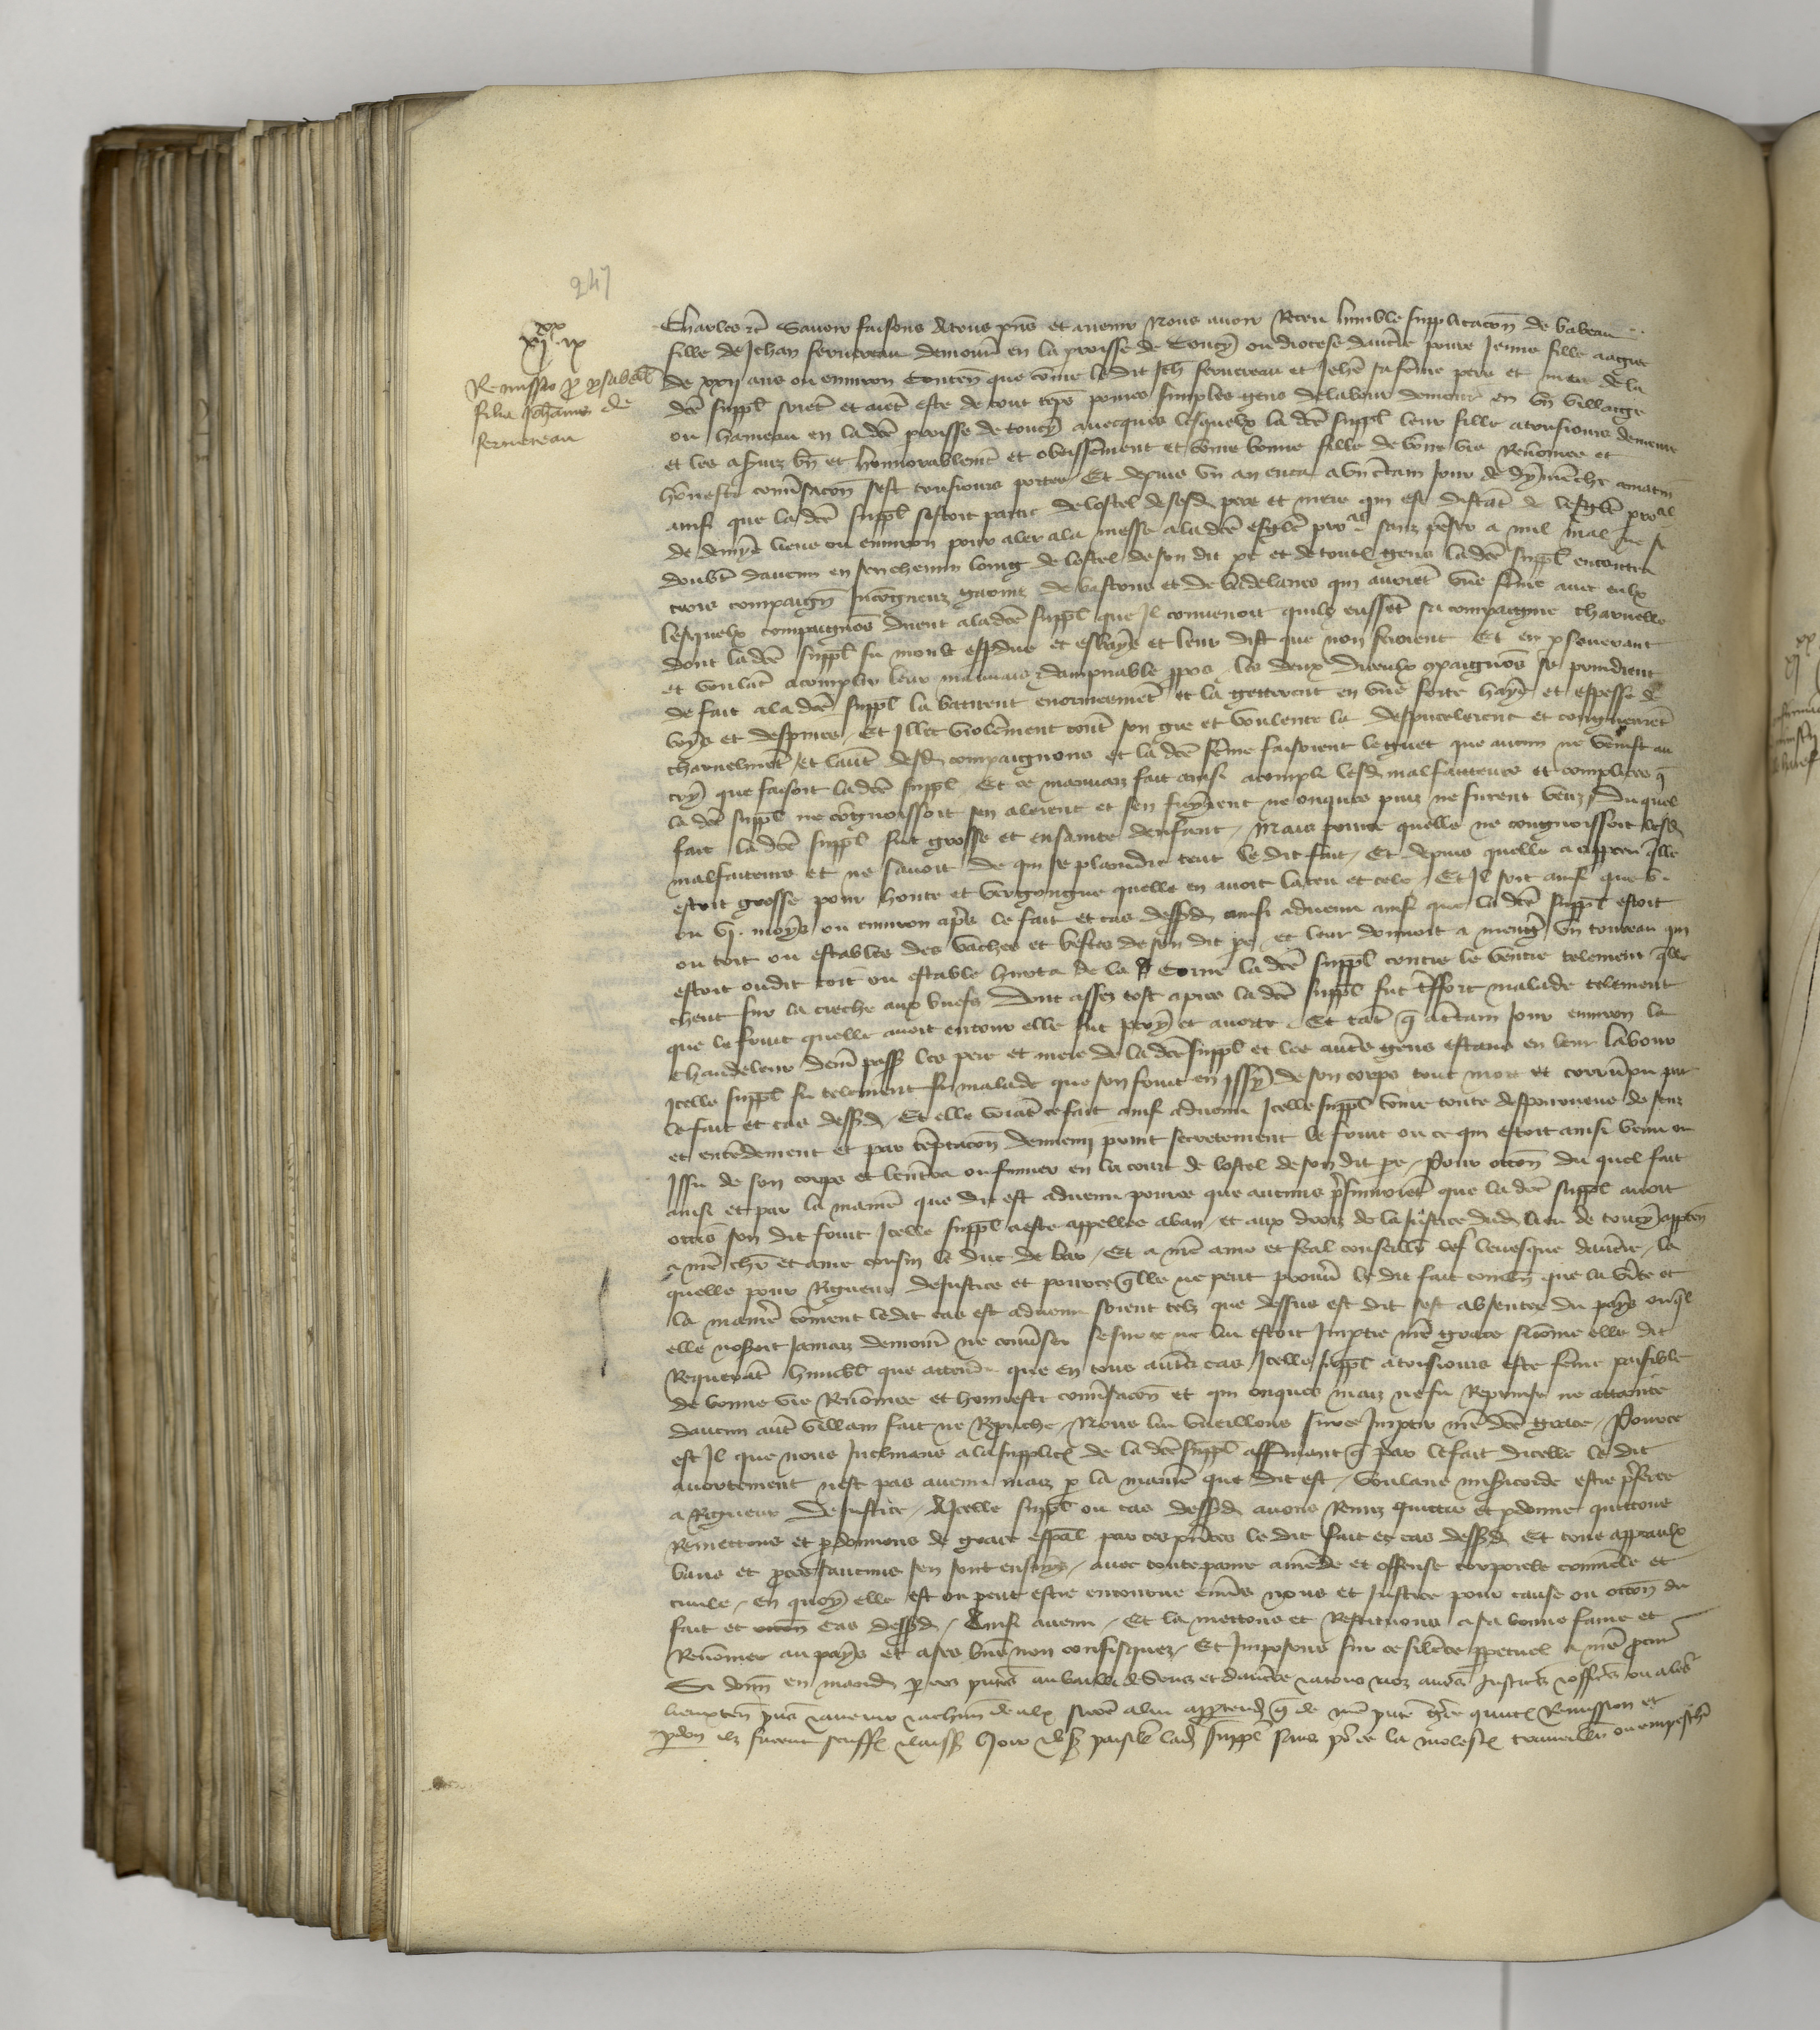 247
xx
xj ix
Remissio p ysabell
filia Johannis de
ferrureau
Charles etc Savoir faisons Atous pns et avenir Nous avoir Receu humble supplicacon de babeau
fille de Jehan ferrureau demour en la proisse de Toucy ou diocese daucre povre Jeune fille aagee
de xxij ans ou environ Conten que come le dit Jeh ferrureau et Jehe sa feme pere et mere de la
dce suppl soiet et aiet este de tout teps povres simples gens de labour demour en un villaige
ou hameau en ladce proisse de toucy avecques lesquelx la dce suppl leur fille a tousiours demoure
et les a suiz bn et honnorablemet et obeissement et come bonne fille de bone vie Renomee et
honneste conusacon sest tousiours portee Et depuis un an enca a un ctain Jour de dymenche au matin
ainsi que la dce suppl sestoit partie de lostel de sesd pere et mere qui est distat de lesglise proal
de demye lieue ou environ pour aler ala messe a la dce esglise proal sanz peser a nul mal ne se
doubt daucun en son chemin loing de lostel de son dit pe et de toutes gens ladce suppl encontra
trois compaigns Incogneuz garniz de bastons et de budelaires qui avoiet une feme avec eulx
lesquelx compaignos dirent ala dce suppl que Il convenoit quilz eusset sa compaignie charnelle
dont ladce suppl fu moult esperdue et esbaye et leur dist que non feroient Et en pseverant
et voulat acomplir leur mauvais & dampnable ppos les deux diceulx cpaignos se prindrent
de fait ala dce suppl la batirent enormeement et la getterent en une forte haye et espesse de
boys et despines Et illec violement cont son gre et voulente la despucelerent et congneuret
charnelmet et laut desd compaignons et la dce feme faisoient leguet que aucun ne venist au
cry que faisoit ladce suppl Et ce mauvaiz fait ainsi acompli lesd malfaiteurs et complices q
la dce suppl ne cognoissoit sen alerent et sen fuyrent ne onques puiz ne furent veuz Du quel
fait la dce suppl fut grosse et ensainte denfant Mais pource quelle ne congnoissoit lesd
malfaiteurs et ne savoit de qui se plaindre teut le dit fait Et depuis quelle a apperceu qlle
estoit grosse pour honte et vergongne quelle en avoit la teu et cele Et Il soit ainsi que v
ou vj moys ou environ apres le fait et cas dessd ainsi advenu ainsi que la dce suppl estoit
ou toit ou estables des vaches et bestes de son dit pe et leur donnoit a meng un toureau qui
estoit oudit toit ou estable hurta de la Corne la dce suppl contre le ventre telement qlle
cheut sur la creche aux buefs Dont assez tost apres la dce suppl fut tresfort malade telement
que le fruit quelle avoit entour elle fut pery et avorte Et tat q a ctain Jour environ la
chandeleur derni pass les pere et mere de la dce suppl et les autres gens estans en leur labour
Icelle suppl fu telement si malade que son fruit en Issy de son corps tout mort et corrompu par
le fait et cas dessd Et elle voiat ce fait ainsi advenu Icelle suppl come toute despourveue de sens
et entedement et par teptacon dennemi print secretement le fruit ou ce qui estoit ainsi venu et
Issu de son corps et lenterra ou fumier en la court de lostel de son dit pe Pour occon du quel fait
ainsi et par la maniere que dit est advenu pource que aucuns presumoiet que la dce suppl avoit
occis son dit fruit Icelle suppl a este appellee a ban et aux droiz de la Justice dud lieu de toucy appten
a nre ch et ame cousin le duc de bar Et a nre ame et feal conseill lef levesque daucre la
quelle pour Rigueur de Justice et pource qlle ne peut prouver le dit fait combn que la vte et
la maniere coment ledit cas est advenu soient telz que dessus est dit sest absentee du pays ou ql
elle noseroit Jamaiz demourer ne conuser se sur ce ne lui estoit Imptie nre grace sicome elle dit
Requerat humbl que attendu que en tous autres cas Icelle suppl a tousiours este feme paisible
de bonne vie Renomee et honneste conusacon et qui onques maiz ne fu Reprinse ne attainte
daucun aut villain fait ne Reproche Nous lui vueillons sur ce Imptir nre dce grace Pource
est Il que nous Inclinans a la supplicacon de la dce suppl affermant q par le fait dicelle le dit
avortement nest pas avenu maiz p la maniere que dit est voulans misericorde estre preferee
a Rigueur de Justice A Icelle suppl ou cas dessd avons Remiz quictie et pdonne quictons
Remettons et pdonnons de grace espal par ces pntes le dit fait et cas dessd Et tous appeaulx
bans et proces saucuns sen sont ensuiz avec toute paine amede et offense corporele criminele et
civile en quoy elle est ou peut estre encourue envers nous et Justice pour cause ou occon du
fait et cas dessd Ainsi avenu Et la mettons et Restituons a sa bonne fame et
Renomee au pays et a ses biens non confisquez Et Imposons sur ce silence ppetuel a nre pcur
Si donn en mand p ces pntes au bailli de Sens et daucerre & a touz noz autres Justiciers & officiers ou a leurs
lieuxten pns & avenir & a chun deulx sicom a lui apptendra q de nre pnte grce quictce Remission et
pdon ilz facent seuffr & laiss Joir & user paisibl lad suppl sans pour ce la molester travaillier ou empescher